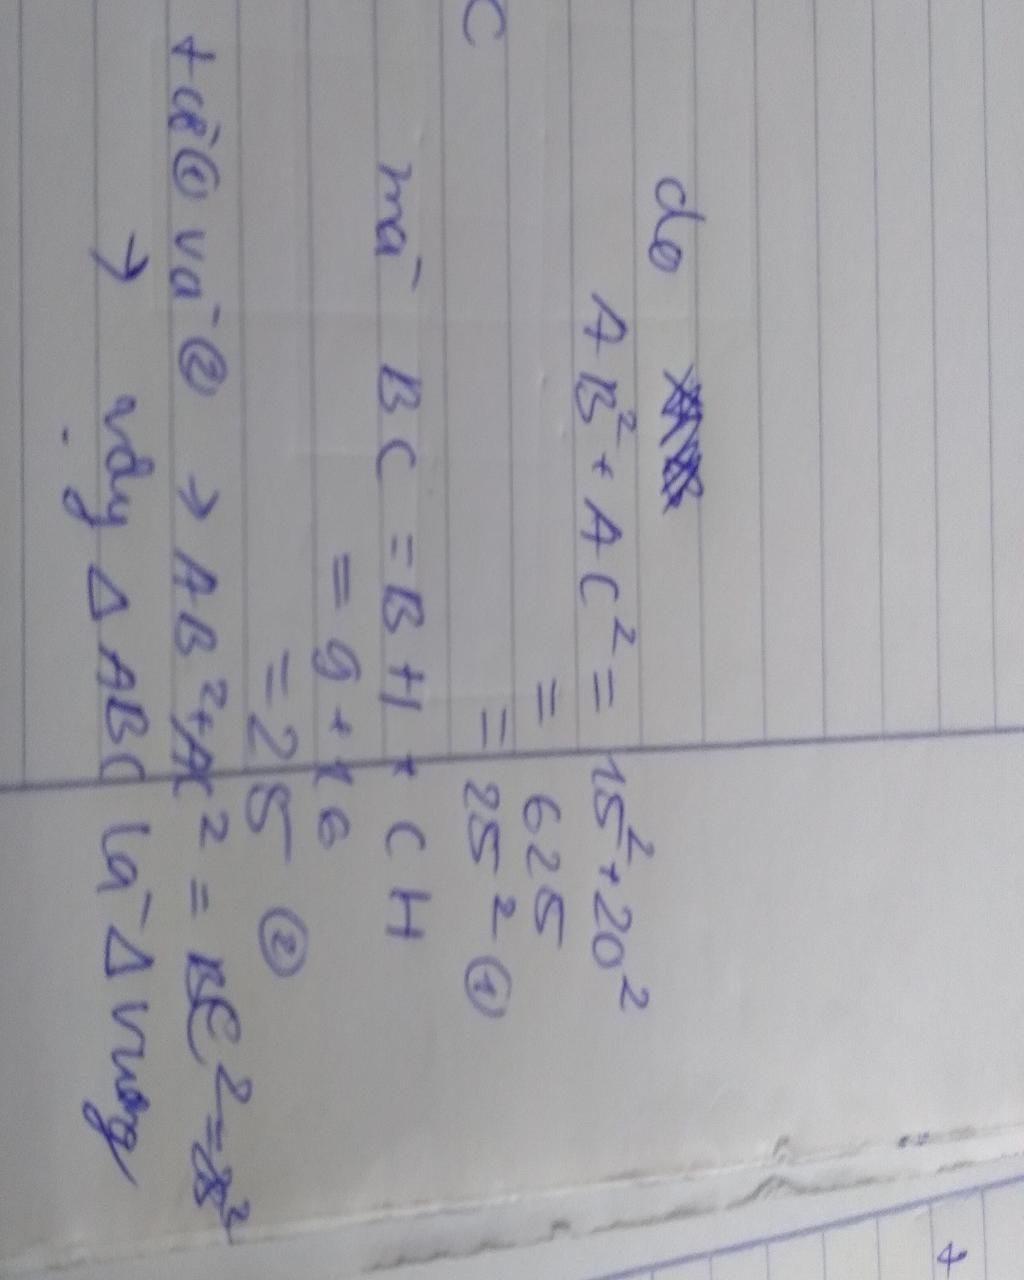 C
do
AB² + AC² = 15² + 20²
= 625
= 25² ①
mà BC = BH + CH
= 9 + 16
= 25 ②
+ từ ① và ② → AB² + AC² = BC² = 25²
→ vậy Δ ABC là Δ vuông